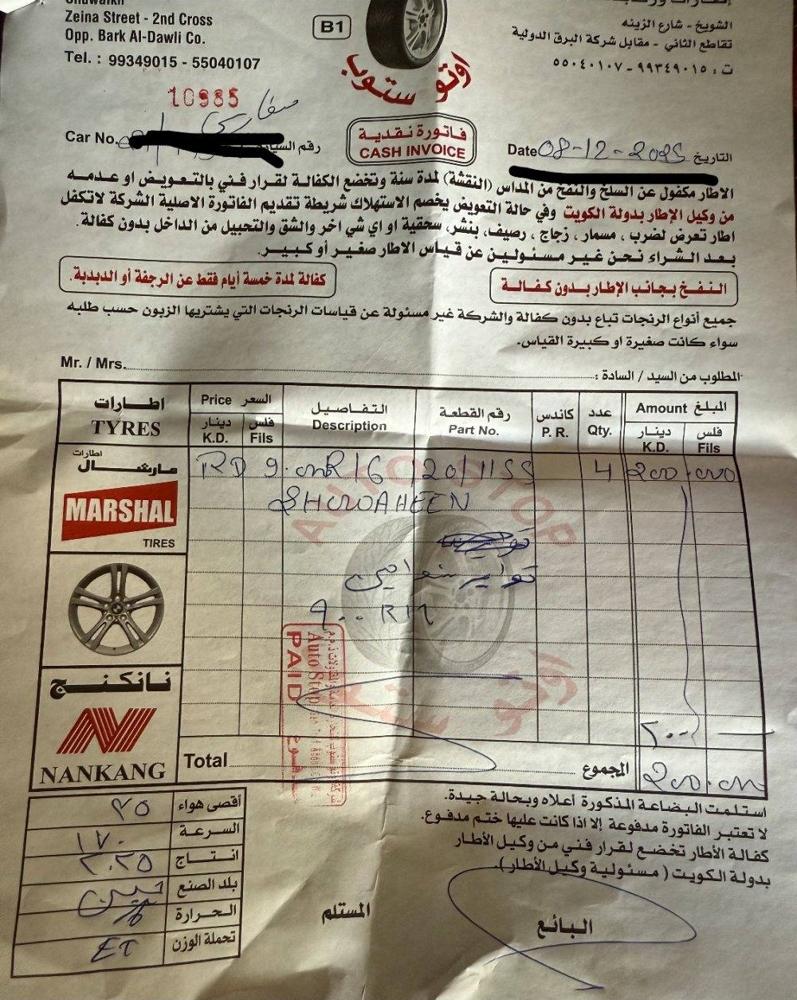 Zeina Street - 2nd Cross
Opp. Bark Al-Dawli Co.
Tel. : 99349015 - 55040107
B1
الشويخ - شارع الزينه
تقاطع الثاني - مقابل شركة البرق الدولية
ت : ٩٩٣٤٩٠١٥ - ٥٥٠٤٠١٠٧
اوتو ستوب
10985
سفاري
Car No.
رقم السيارة
فاتورة نقدية
CASH INVOICE
Date 08-12-2025 التاريخ
الاطار مكفول عن السلخ والنفخ من المداس (النقشة) لمدة سنة وتخضع الكفالة لقرار فني بالتعويض او عدمه
من وكيل الإطار بدولة الكويت وفي حالة التعويض يخصم الاستهلاك شريطة تقديم الفاتورة الاصلية الشركة لاتكفل
اطار تعرض لضرب ، مسمار ، زجاج ، رصيف، بنشر، سحقية او اي شي اخر والشق والتحبيل من الداخل بدون كفالة.
بعد الشراء نحن غير مسئولين عن قياس الاطار صغير أو كبير.
النفخ بجانب الإطار بدون كفالة
كفالة لمدة خمسة أيام فقط عن الرجفة أو الدبدبة.
جميع أنواع الرنجات تباع بدون كفالة والشركة غير مسئولة عن قياسات الرنجات التي يشتريها الزبون حسب طلبه
سواء كانت صغيرة او كبيرة القياس.
Mr. / Mrs.
المطلوب من السيد / السادة :
اطارات
TYRES
Price السعر
دينار K.D.
فلس Fils
التفاصيل
Description
رقم القطعة
Part No.
كاندس
P. R.
عدد
Qty.
Amount المبلغ
دينار K.D.
فلس Fils
اطارات
مارشال
MARSHAL
TIRES
R16
4
200.000
SHOWAHEEN
تواير شواحين
٩٠٠ R١٦
AUTO STOP
اوتو ستوب
Auto Stop
PAID
مدفوع
نانكنج
NANKANG
٢٠٠
Total
المجموع
200.000
أقصى هواء ٣٥
السرعة ١٧٠
انتاج ٢.٢٥
بلد الصنع
الحرارة
تحملة الوزن
استلمت البضاعة المذكورة اعلاه وبحالة جيدة.
لا تعتبر الفاتورة مدفوعة إلا اذا كانت عليها ختم مدفوع.
كفالة الأطار تخضع لقرار فني من وكيل الأطار
بدولة الكويت ( مسئولية وكيل الأطار).
المستلم
البائع